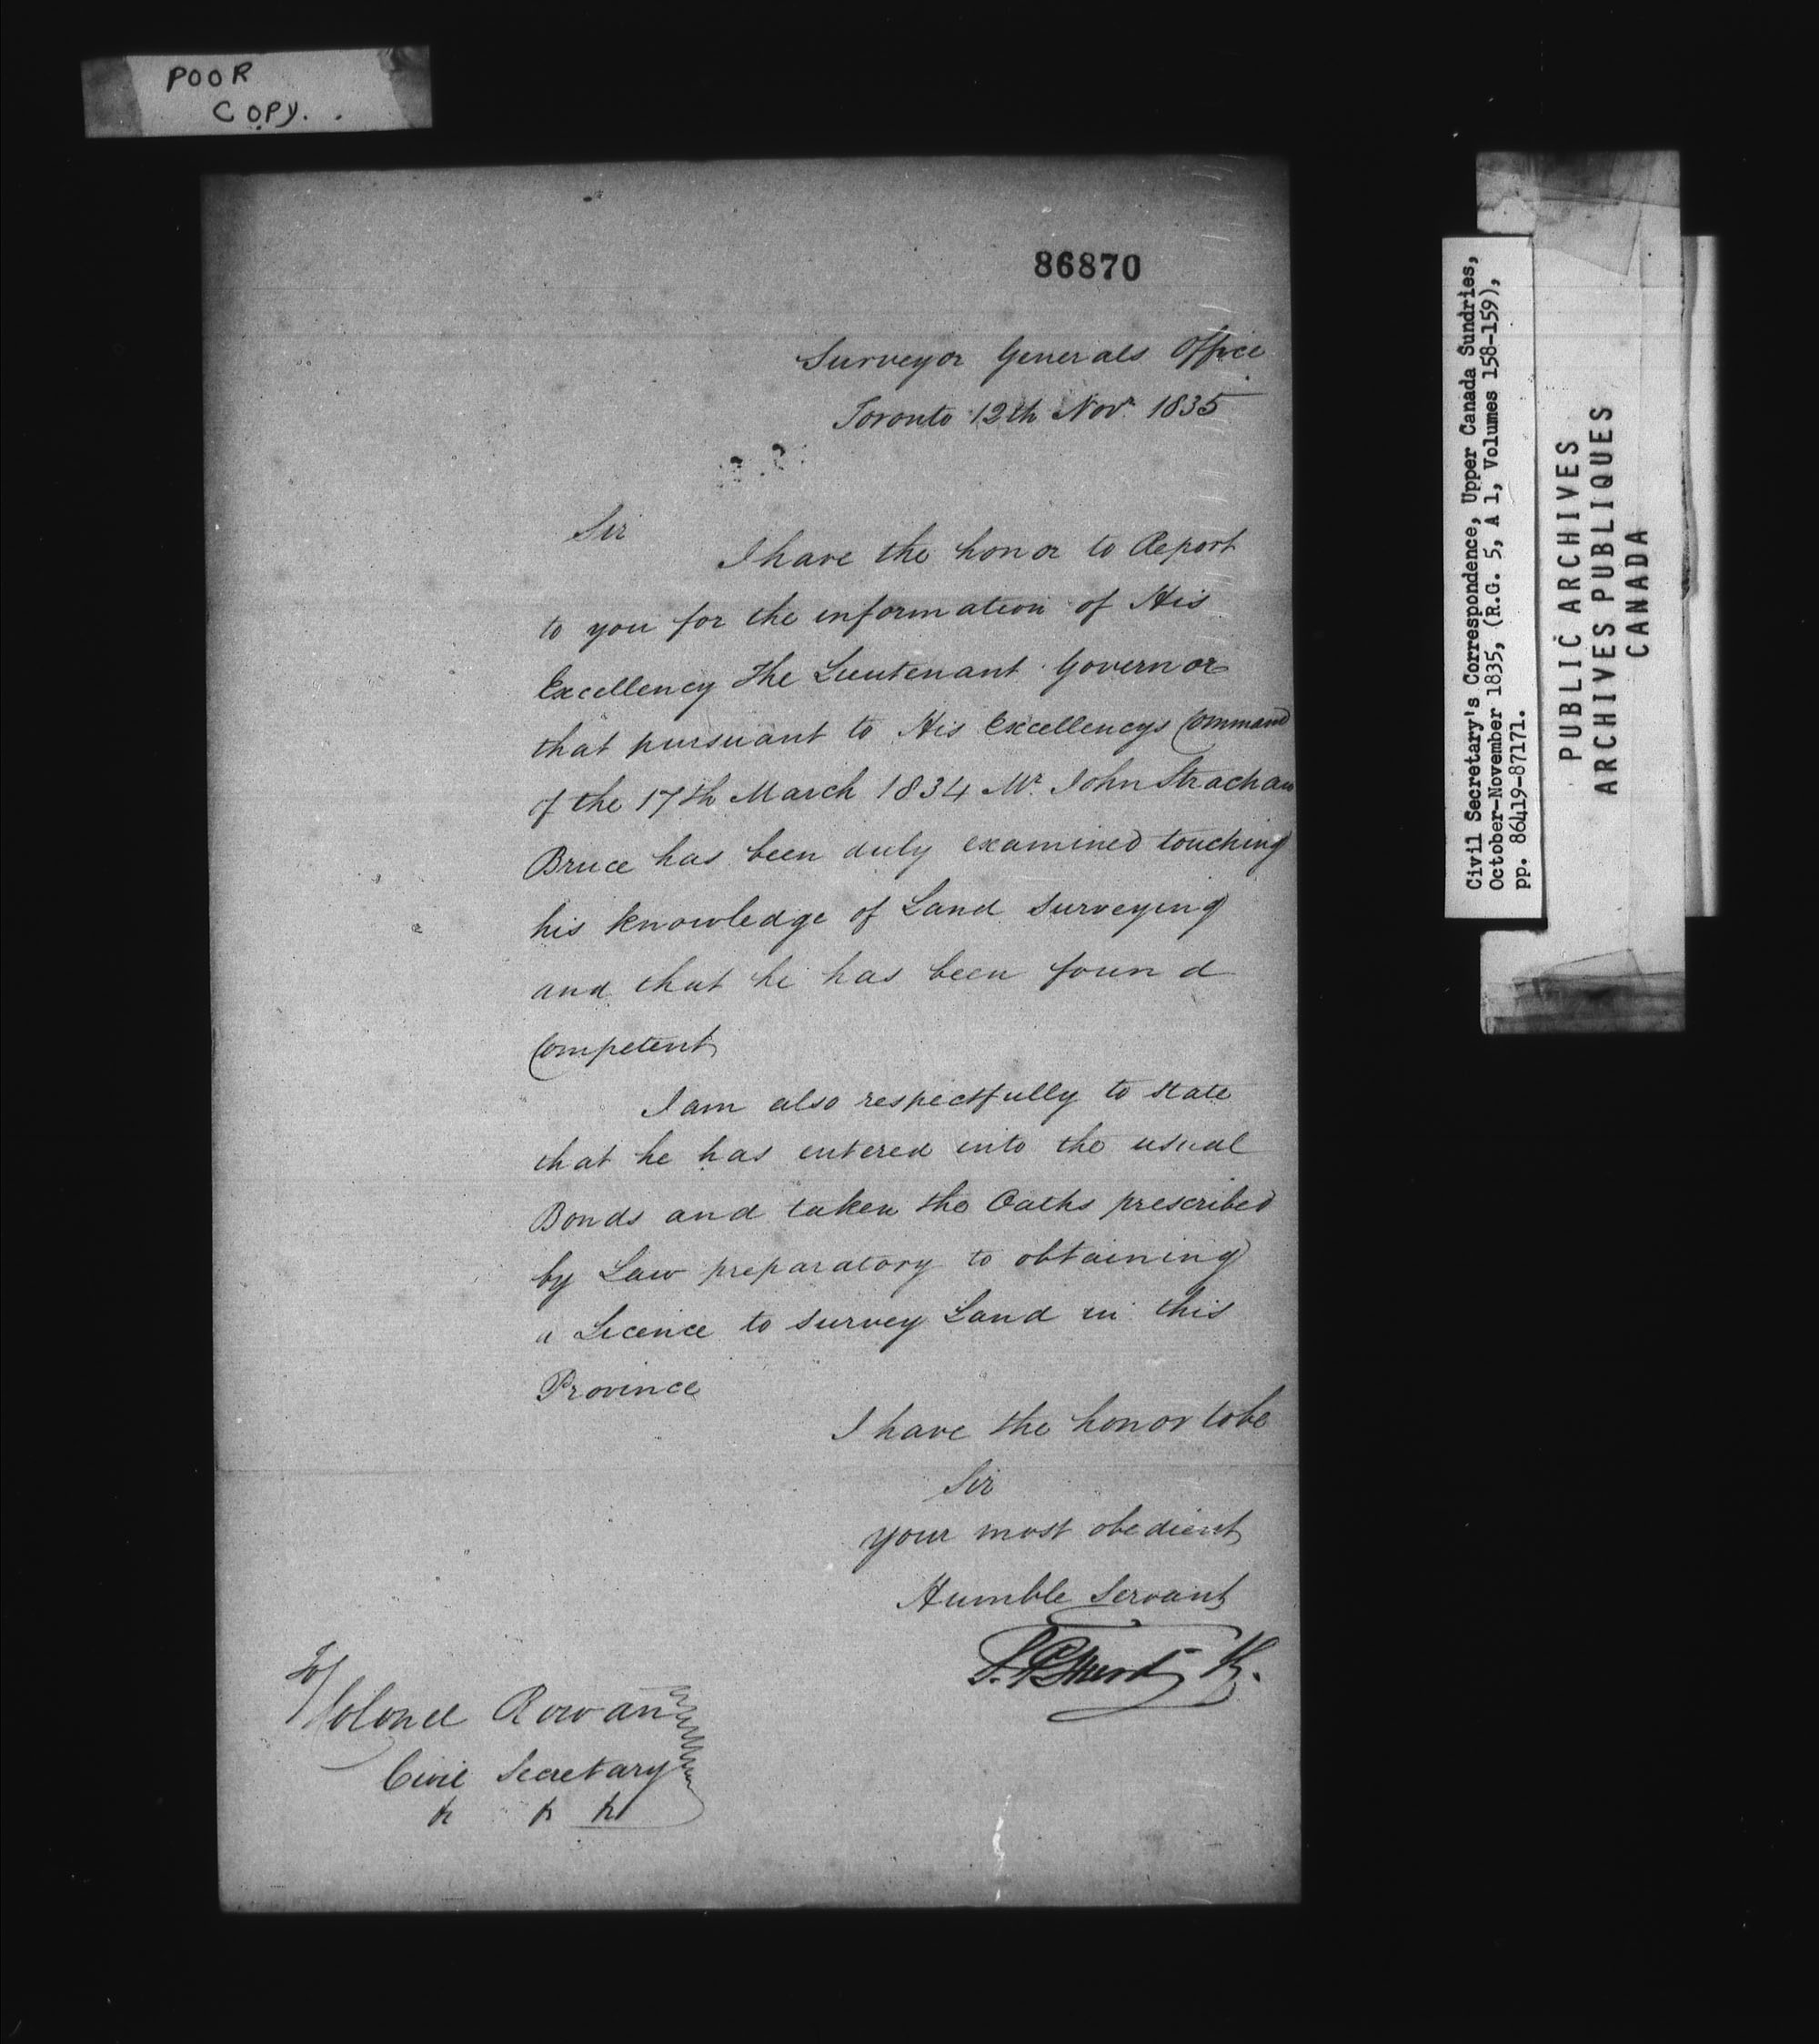 POOR
COPY.
86870
Surveyor Generals Office
Toronto 12th Novr. 1835
Sir
I have the honor to Report
to you for the information of His
Excellency The Lieutenant Governor
that pursuant to His Excellencys Command
of the 17th March 1834 Mr. John Strachan
Bruce has been duly examined touching
his knowledge of Land Surveying
and that he has been found
Competent
I am also respectfully to state
that he has entered into the usual
Bonds and taken the Oaths prescribed
by Law preparatory to obtaining
a Licence to survey Land in this
Province
I have the honor to be
Sir
your most obedient
Humble Servant
To/
Colonel Rowan
Civil Secretary
Civil Secretary's Correspondence, Upper Canada Sundries,
October-November 1835, (R.G. 5, A 1, Volumes 158-159),
pp. 86419-87171.
PUBLIC ARCHIVES
ARCHIVES PUBLIQUES
CANADA